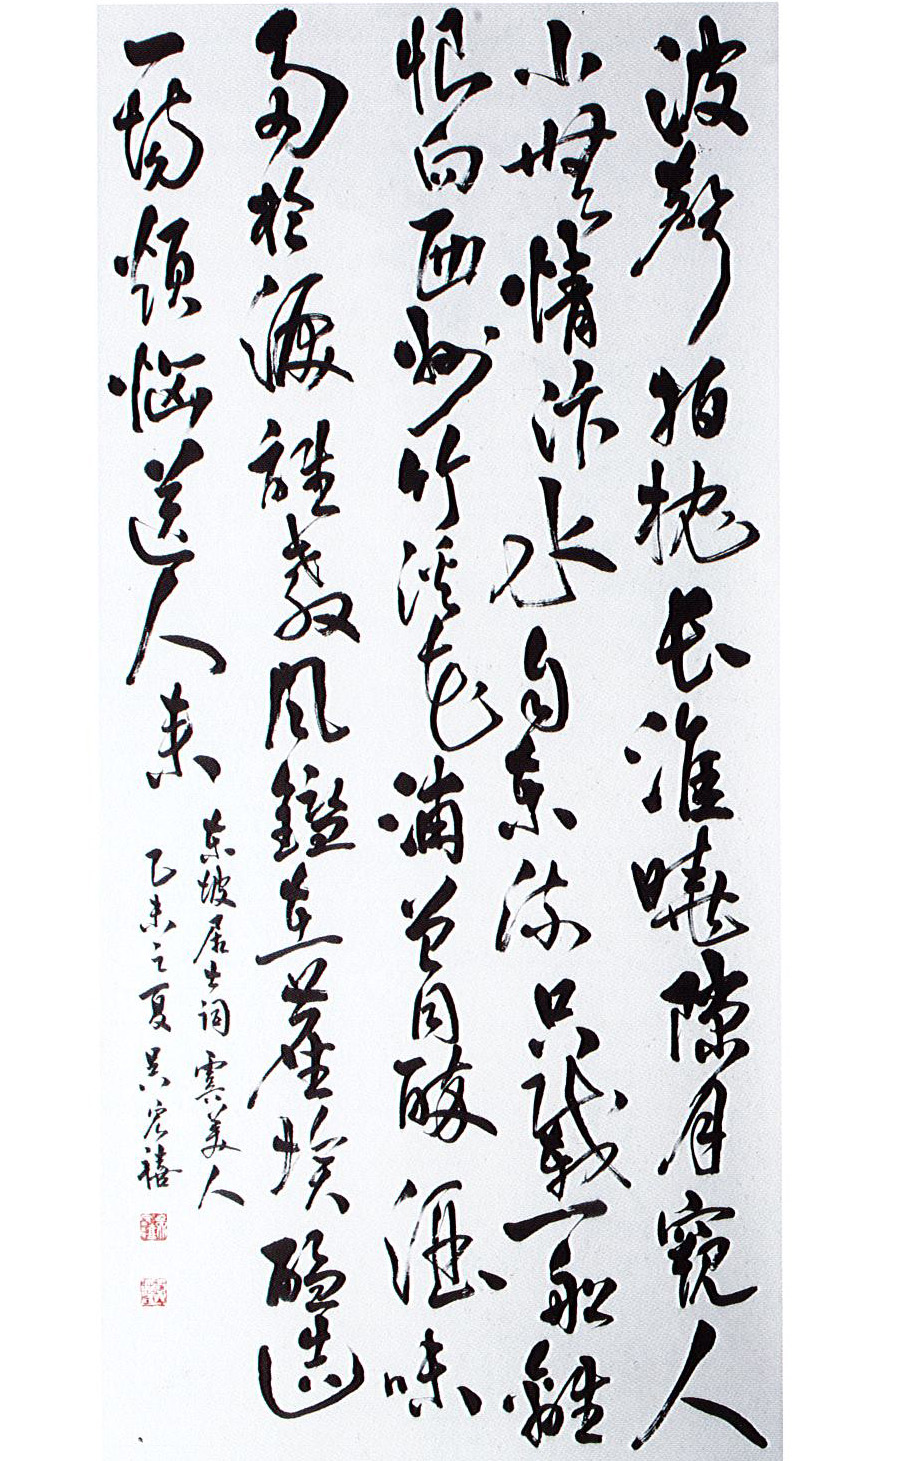 波声拍枕长淮晓隙月窥人
小无情汴水自东流只载一船离
恨向西州竹溪花浦曾同醉酒味
多于泪谁教风鉴在尘埃酝造
一场烦恼送人来
东坡居士词虞美人
乙未之夏吴宏禧